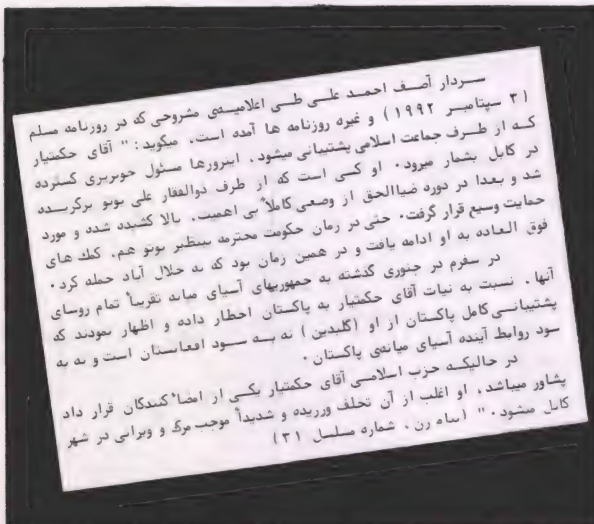 ســردار آصـف احمـد علــی طــی اعلامیــهی مشروحی که در روزنامه مسلم
(۳ سپتامبـر ۱۹۹۲) و غیره روزنامه ها آمده است، میگوید: " آقای حکمتیار
کـه از طــرف جماعت اسلامی پشتیبانی میشود، اینروزها مسئول خونریزی گسترده
در کابل بشمار میرود. او کسی است که از طرف ذوالفقار علی بوتو برگزیـده
شد و بعدا در دوره ضیاالحق از وضعی کاملاً بی اهمیت، بالا کشیده شده و مورد
حمایت وسیع قرار گرفت. حتی در زمان حکومت محترمه بینظیر بوتو هم، کمک های
فوق العـاده به او ادامه یافت و در همین زمان بود که به جلال آباد حمله کرد.
در سفرم در جنوری گذشته به جمهوریهای آسیای میانه تقریباً تمام روسای
آنها، نسبت به نیات آقای حکمتیار به پاکستان اخطار داده و اظهار نمودند که
پشتیبانــی کامل پاکستان از او (گلبدین) نه بــه ســود افغانستان است و نه به
سود روابط آینده آسیای میانهی پاکستان.
در حالیکــه حزب اسلامــی آقای حکمتیار یکــی از امضاً کنندگان قرار داد
پشاور میباشد، او اغلب از آن تخلف ورزیده و شدیداً موجب مرگ و ویرانی در شهر
کابل میشود." (پیام زن، شماره مسلسل ۳۱)